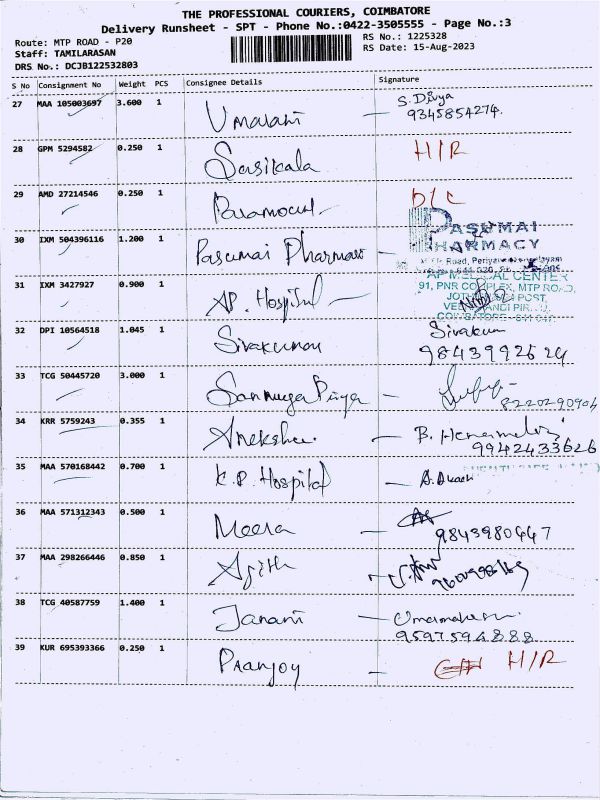 THE PROFESSIONAL COURIERS, COIMBATORE
Delivery Runsheet - SPT - Phone No.:0422-3505555 - Page No.:3
Route: MTP ROAD - P20
Staff: TAMILARASAN
DRS No.: DCJB122532803
RS No.: 1225328
RS Date: 15-Aug-2023
S No Consignment No Weight PCS Consignee Details Signature
27 MAA 105003697 3.600 1 Umarani — S. Divya
9345854274
28 GPM 5294582 0.250 1 Sasikala H/R
29 AMD 27214546 0.250 1 D/C
30 IXM 504396116 1.200 1 Pasumai Pharmacy PASUMAI
PHARMACY
31 IXM 3427927 0.900 1 AP. Hospital — AP MEDICAL CENTER
91, PNR COMPLEX, MTP ROAD,
POST,
32 DPI 10564518 1.045 1 Sivakumar Sivakum
9843992624
33 TCG 50445720 3.000 1 Sanmuga Priya —
8220290904
34 KRR 5759243 0.355 1 — B.
9942433626
35 MAA 570168442 0.700 1 K.P. Hospital —
36 MAA 571312343 0.500 1 Meera — 9843980447
37 MAA 298266446 0.850 1 Ajith
38 TCG 40587759 1.400 1 Janani — Umamahes
9597594888
39 KUR 695393366 0.250 1 — H/R